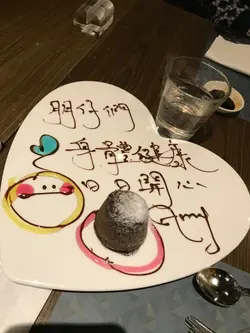 朋仔們
身體健康
日日開心
Amy